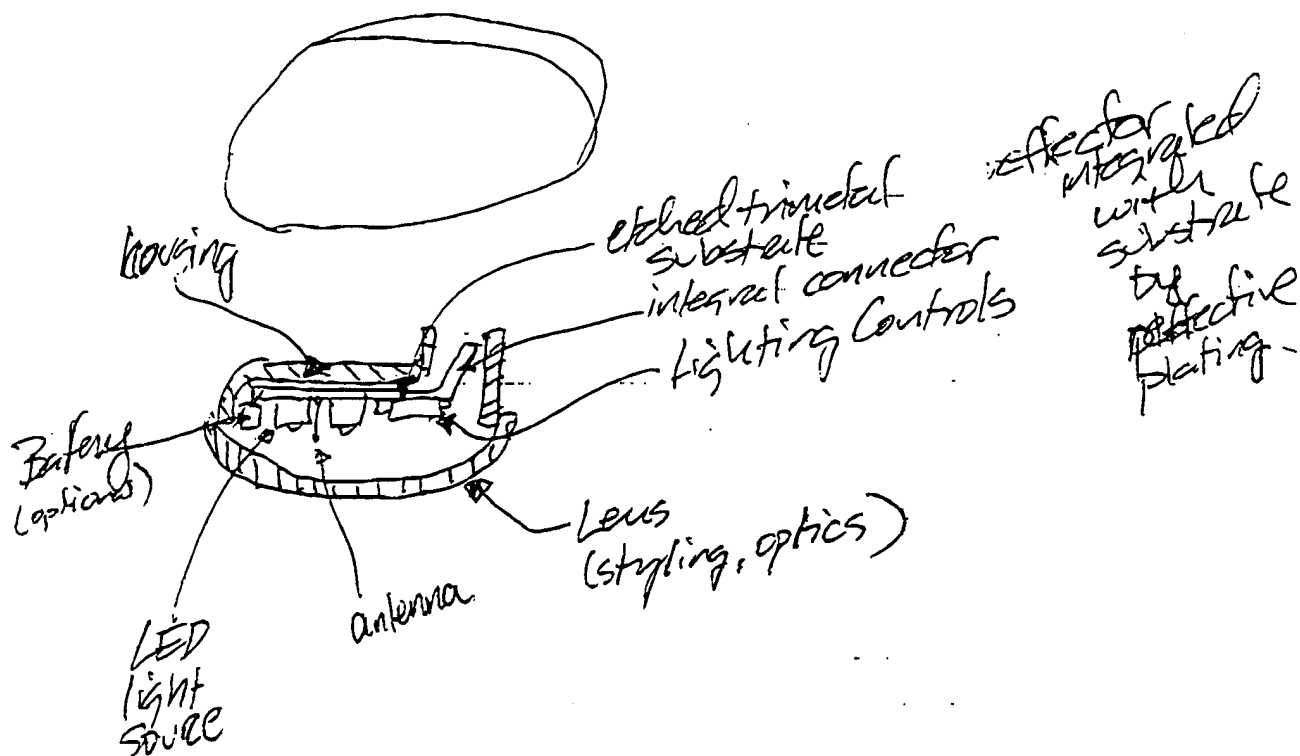 housing
etched trimetal
substrate
integral connector
Lighting Controls
reflector
integrated
with
substrate
by
reflective
plating-
Battery
(options)
Lens
(styling, optics)
antenna
LED
light
source